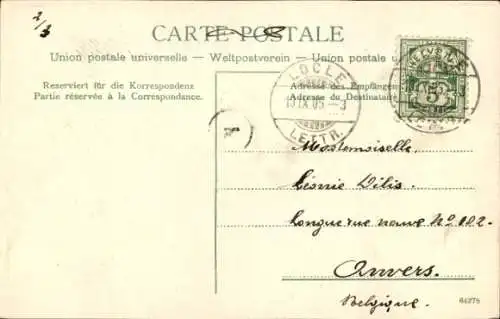 2/3
CARTE POSTALE
Union postale universelle — Weltpostverein — Union postale u
Reserviert für die Korrespondenz
Partie réservée à la Correspondance.
Adresse des Empfängers
Adresse du Destinataire
LOCLE
10 IX 05 - 3
LETTR.
HELVETIA
5
Mademoiselle
Léonie Dilis.
Longue rue neuve No 102.
Anvers.
Belgique.
64278